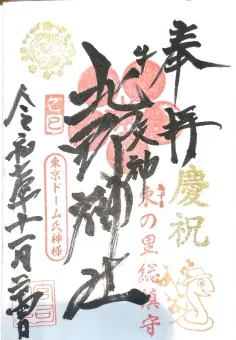 奉拝
慶祝
牛天神
北野神社
東の里総鎮守
乙巳
東京ドーム氏神様
令和七年十一月